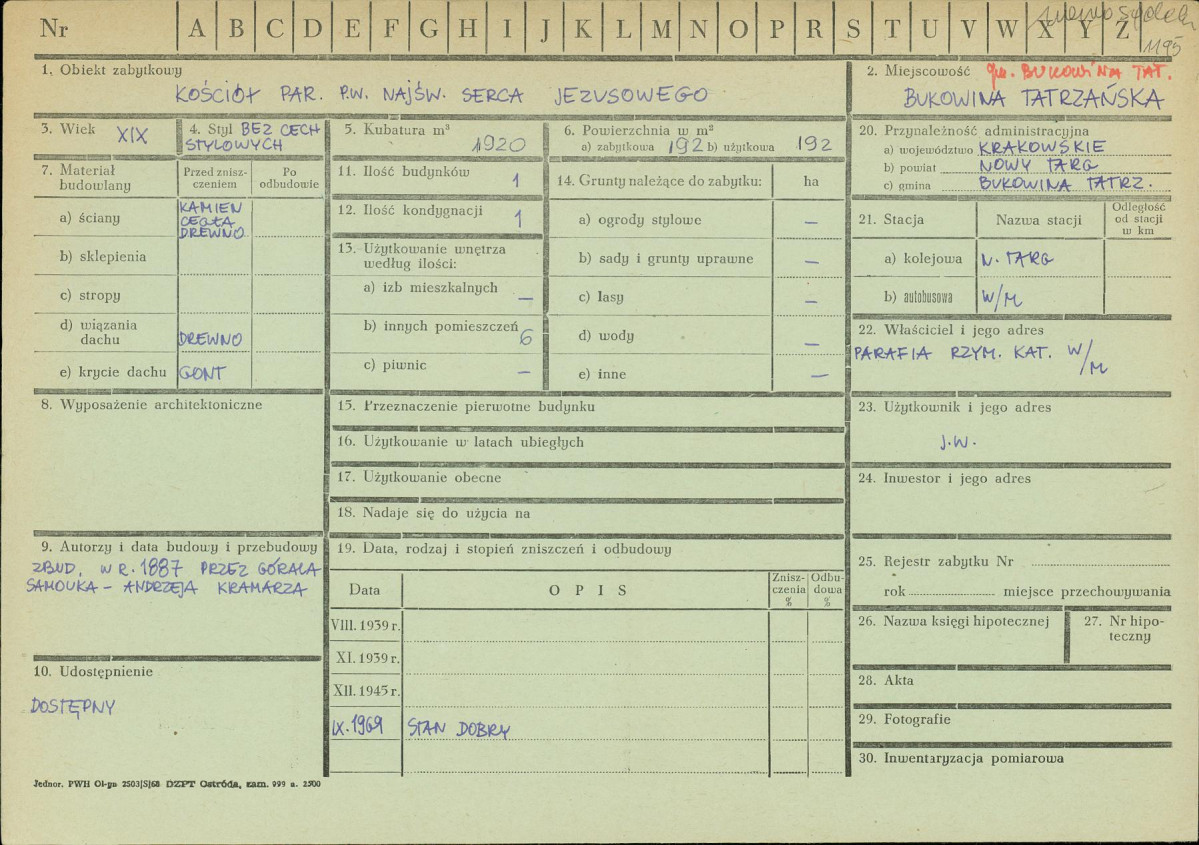 Nr A B C D E F G H I J K L M N O P R S T U V W X Y Z
1195
1. Obiekt zabytkowy
KOŚCIÓŁ PAR. P.W. NAJŚW. SERCA JEZUSOWEGO
2. Miejscowość gm. BUKOWINA TAT.
BUKOWINA TATRZAŃSKA
3. Wiek XIX
4. Styl BEZ CECH
STYLOWYCH
5. Kubatura m³
1920
6. Powierzchnia w m²
a) zabytkowa 192 b) użytkowa 192
7. Materiał
budowlany
Przed znisz-
czeniem
Po
odbudowie
a) ściany KAMIEN
CEGŁA
DREWNO
b) sklepienia
c) stropy
d) wiązania
dachu DREWNO
e) krycie dachu GONT
8. Wyposażenie architektoniczne
9. Autorzy i data budowy i przebudowy
ZBUD. W R. 1887 PRZEZ GÓRALA
SAMOUKA – ANDRZEJA KRAMARZA
10. Udostępnienie
DOSTĘPNY
11. Ilość budynków 1
12. Ilość kondygnacji 1
13. Użytkowanie wnętrza
według ilości:
a) izb mieszkalnych –
b) innych pomieszczeń 6
c) piwnic –
14. Grunty należące do zabytku: ha
a) ogrody stylowe –
b) sady i grunty uprawne –
c) lasy –
d) wody –
e) inne –
15. Przeznaczenie pierwotne budynku
16. Użytkowanie w latach ubiegłych
17. Użytkowanie obecne
18. Nadaje się do użycia na
19. Data, rodzaj i stopień zniszczeń i odbudowy
Data OPIS Znisz-
czenia
%
Odbu-
dowa
%
VIII. 1939 r.
XI. 1939 r.
XII. 1945 r.
IX. 1969 STAN DOBRY
20. Przynależność administracyjna
a) województwo KRAKOWSKIE
b) powiat NOWY TARG
c) gmina BUKOWINA TATRZ.
21. Stacja Nazwa stacji Odległość
od stacji
w km
a) kolejowa N. TARG
b) autobusowa W/M
22. Właściciel i jego adres
PARAFIA RZYM. KAT. W/M
23. Użytkownik i jego adres
J.W.
24. Inwestor i jego adres
25. Rejestr zabytku Nr
rok miejsce przechowywania
26. Nazwa księgi hipotecznej
27. Nr hipo-
teczny
28. Akta
29. Fotografie
30. Inwentaryzacja pomiarowa
Jednor. PWH Ol-gn 2503/S/68 DZPT Ostróda, zam. 999 n. 2500